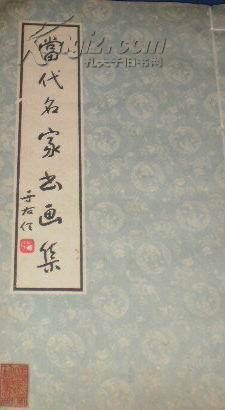 當代名家书画集
于右任
孔夫子旧书网